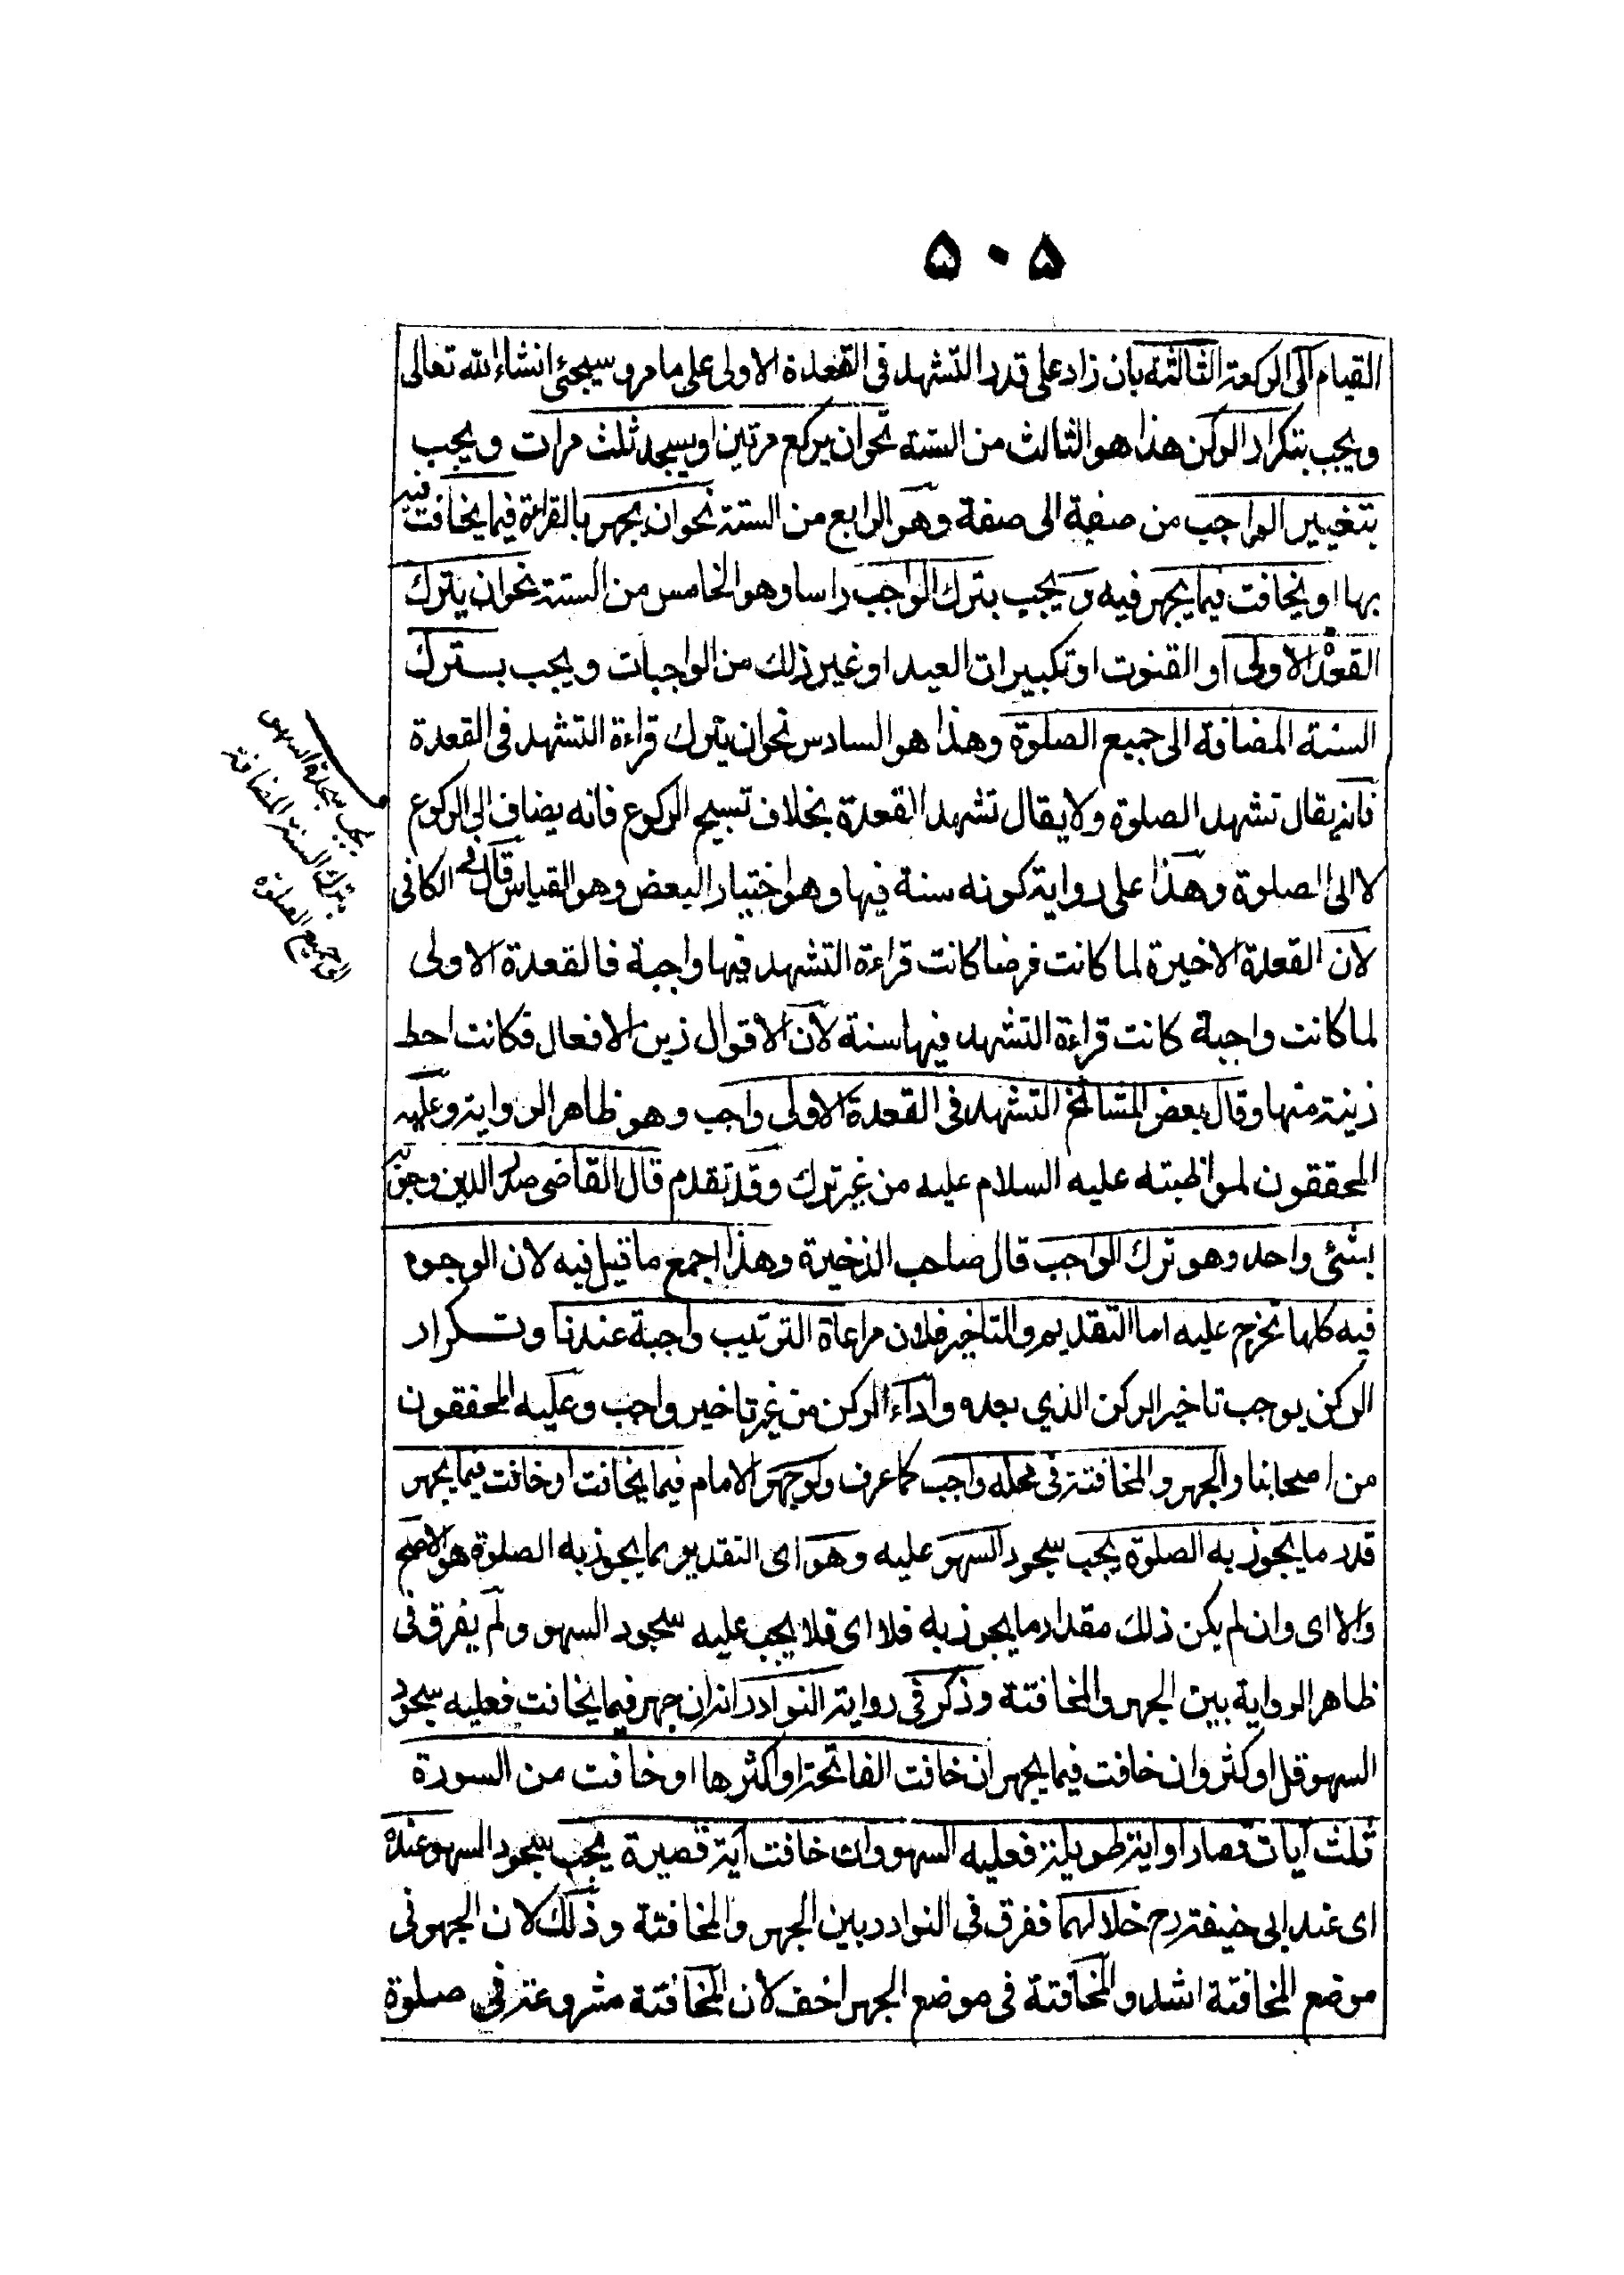 ۵۰۵
القيام الى الركعة الثالثة بان زاد على قدر التشهد فى القعدة الاولى على ما مر و سيجئ انشاء الله تعالى
ويجب بتكرار الركن هذا هو الثالث من الستة نحو ان يركع مرتين او يسجد ثلث مرات ويجب
بتغيير الواجب من صفة الى صفة وهو الرابع من الستة نحو ان يجهر بالقراءة فيما يخافت فيه
بها او يخافت فيما يجهر فيه ويجب بترك الواجب راسا وهو الخامس من الستة نحو ان يترك
القعدة الاولى او القنوت او تكبيرات العيد او غير ذلك من الواجبات ويجب بسترك
السنة المضافة الى جميع الصلوة وهذا هو السادس نحو ان يترك قراءة التشهد فى القعدة
فانه يقال تشهد الصلوة ولا يقال تشهد القعدة بخلاف تسبيح الركوع فانه يضاف الى الركوع
لا الى الصلوة وهذا على رواية كونه سنة فيها وهو اختيار البعض وهو القياس قال فى الكافى
لان القعدة الاخيرة لما كانت فرضا كانت قراءة التشهد فيها واجبة فالقعدة الاولى
لما كانت واجبة كانت قراءة التشهد فيها سنة لان الاقوال زين الافعال فكانت احط
زينة منها وقال بعض المشائخ التشهد فى القعدة الاولى واجب وهو ظاهر الرواية وعليه
المحققون لمواظبته عليه السلام عليه من غير ترك وقد تقدم قال القاضى صدر الدين وجوبه
بشئ واحد وهو ترك الواجب قال صاحب الذخيرة وهذا اجمع ما قيل فيه لان الوجوه
فيه كلها تخرج عليه اما التقديم والتاخير فلان مراعاة الترتيب واجبة عندنا وتكرار
الركن يوجب تاخير الركن الذي بعده واداء الركن من غير تاخير واجب وعليه المحققون
من اصحابنا والجهر والمخافتة فى محله واجب كما عرف ولو جهر الامام فيما يخافت او خافت فيما يجهر
قدر ما يجوز به الصلوة يجب سجود السهو عليه وهو اى التقدير بما يجوز به الصلوة هو الاصح
والا اى وان لم يكن ذلك مقدار ما يجوز به فلا اى فلا يجب عليه سجود السهو ولم يفرق فى
ظاهر الرواية بين الجهر والمخافتة وذكر فى رواية النوادر انه ان جهر فيما يخافت فعليه سجود
السهو قل او كثر وان خافت فيما يجهر ان خافت الفاتحة او اكثرها او خافت من السورة
ثلث آيات قصار او اية طويلة فعليه السهو وان خافت آية قصيرة يجب سجود السهو عنده
اى عند ابى حنيفة رح خلافا لهما ففرق فى النوادر بين الجهر والمخافتة وذلك لان الجهر فى
موضع المخافتة اشد والمخافتة فى موضع الجهر اخف لان المخافتة مشروعة فى صلوة
يجب سجدة السهو
بترك السنة المضافة
الى جميع الصلوة